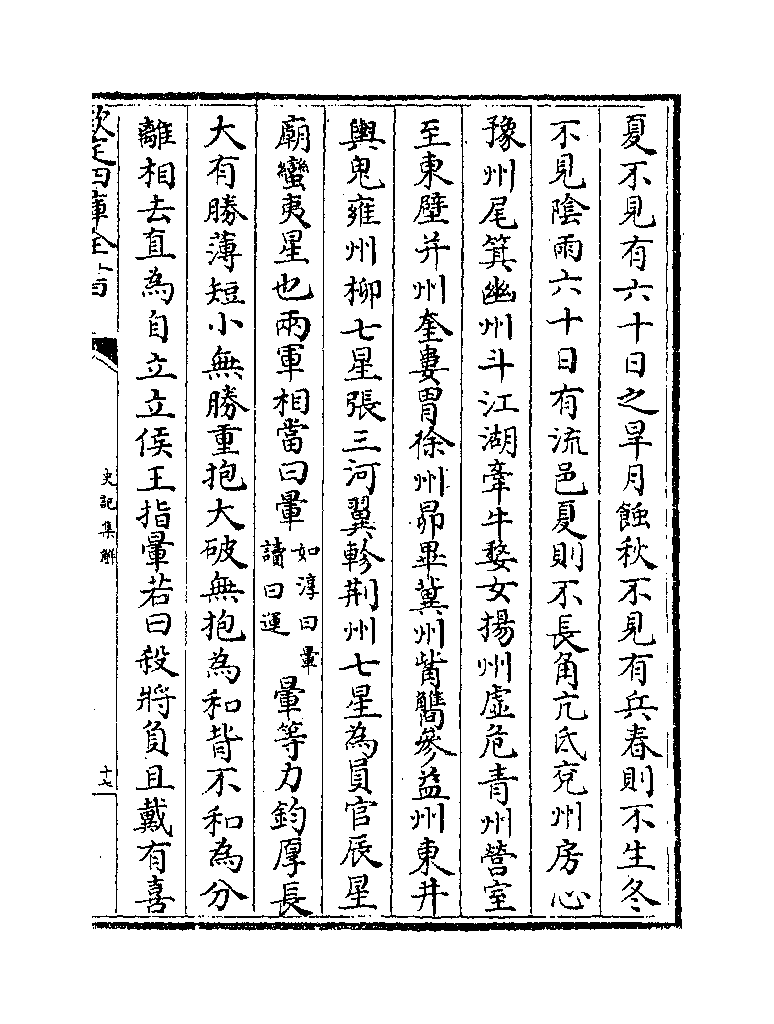 夏不見有六十日之旱月蝕秋不見有兵春則不生冬
不見陰雨六十日有流邑夏則不長角亢氐兗州房心
豫州尾箕幽州斗江湖牽牛婺女揚州虛危青州營室
至東壁并州奎婁胃徐州昴畢冀州觜觿參益州東井
輿鬼雍州柳七星張三河翼軫荆州七星為員官辰星
廟蠻夷星也兩軍相當曰暈如淳曰暈讀曰運暈等力鈞厚長
大有勝薄短小無勝重抱大破無抱為和背不和為分
離相去直為自立立侯王指暈若曰殺將負且戴有喜
欽定四庫全書
史記集解
十七